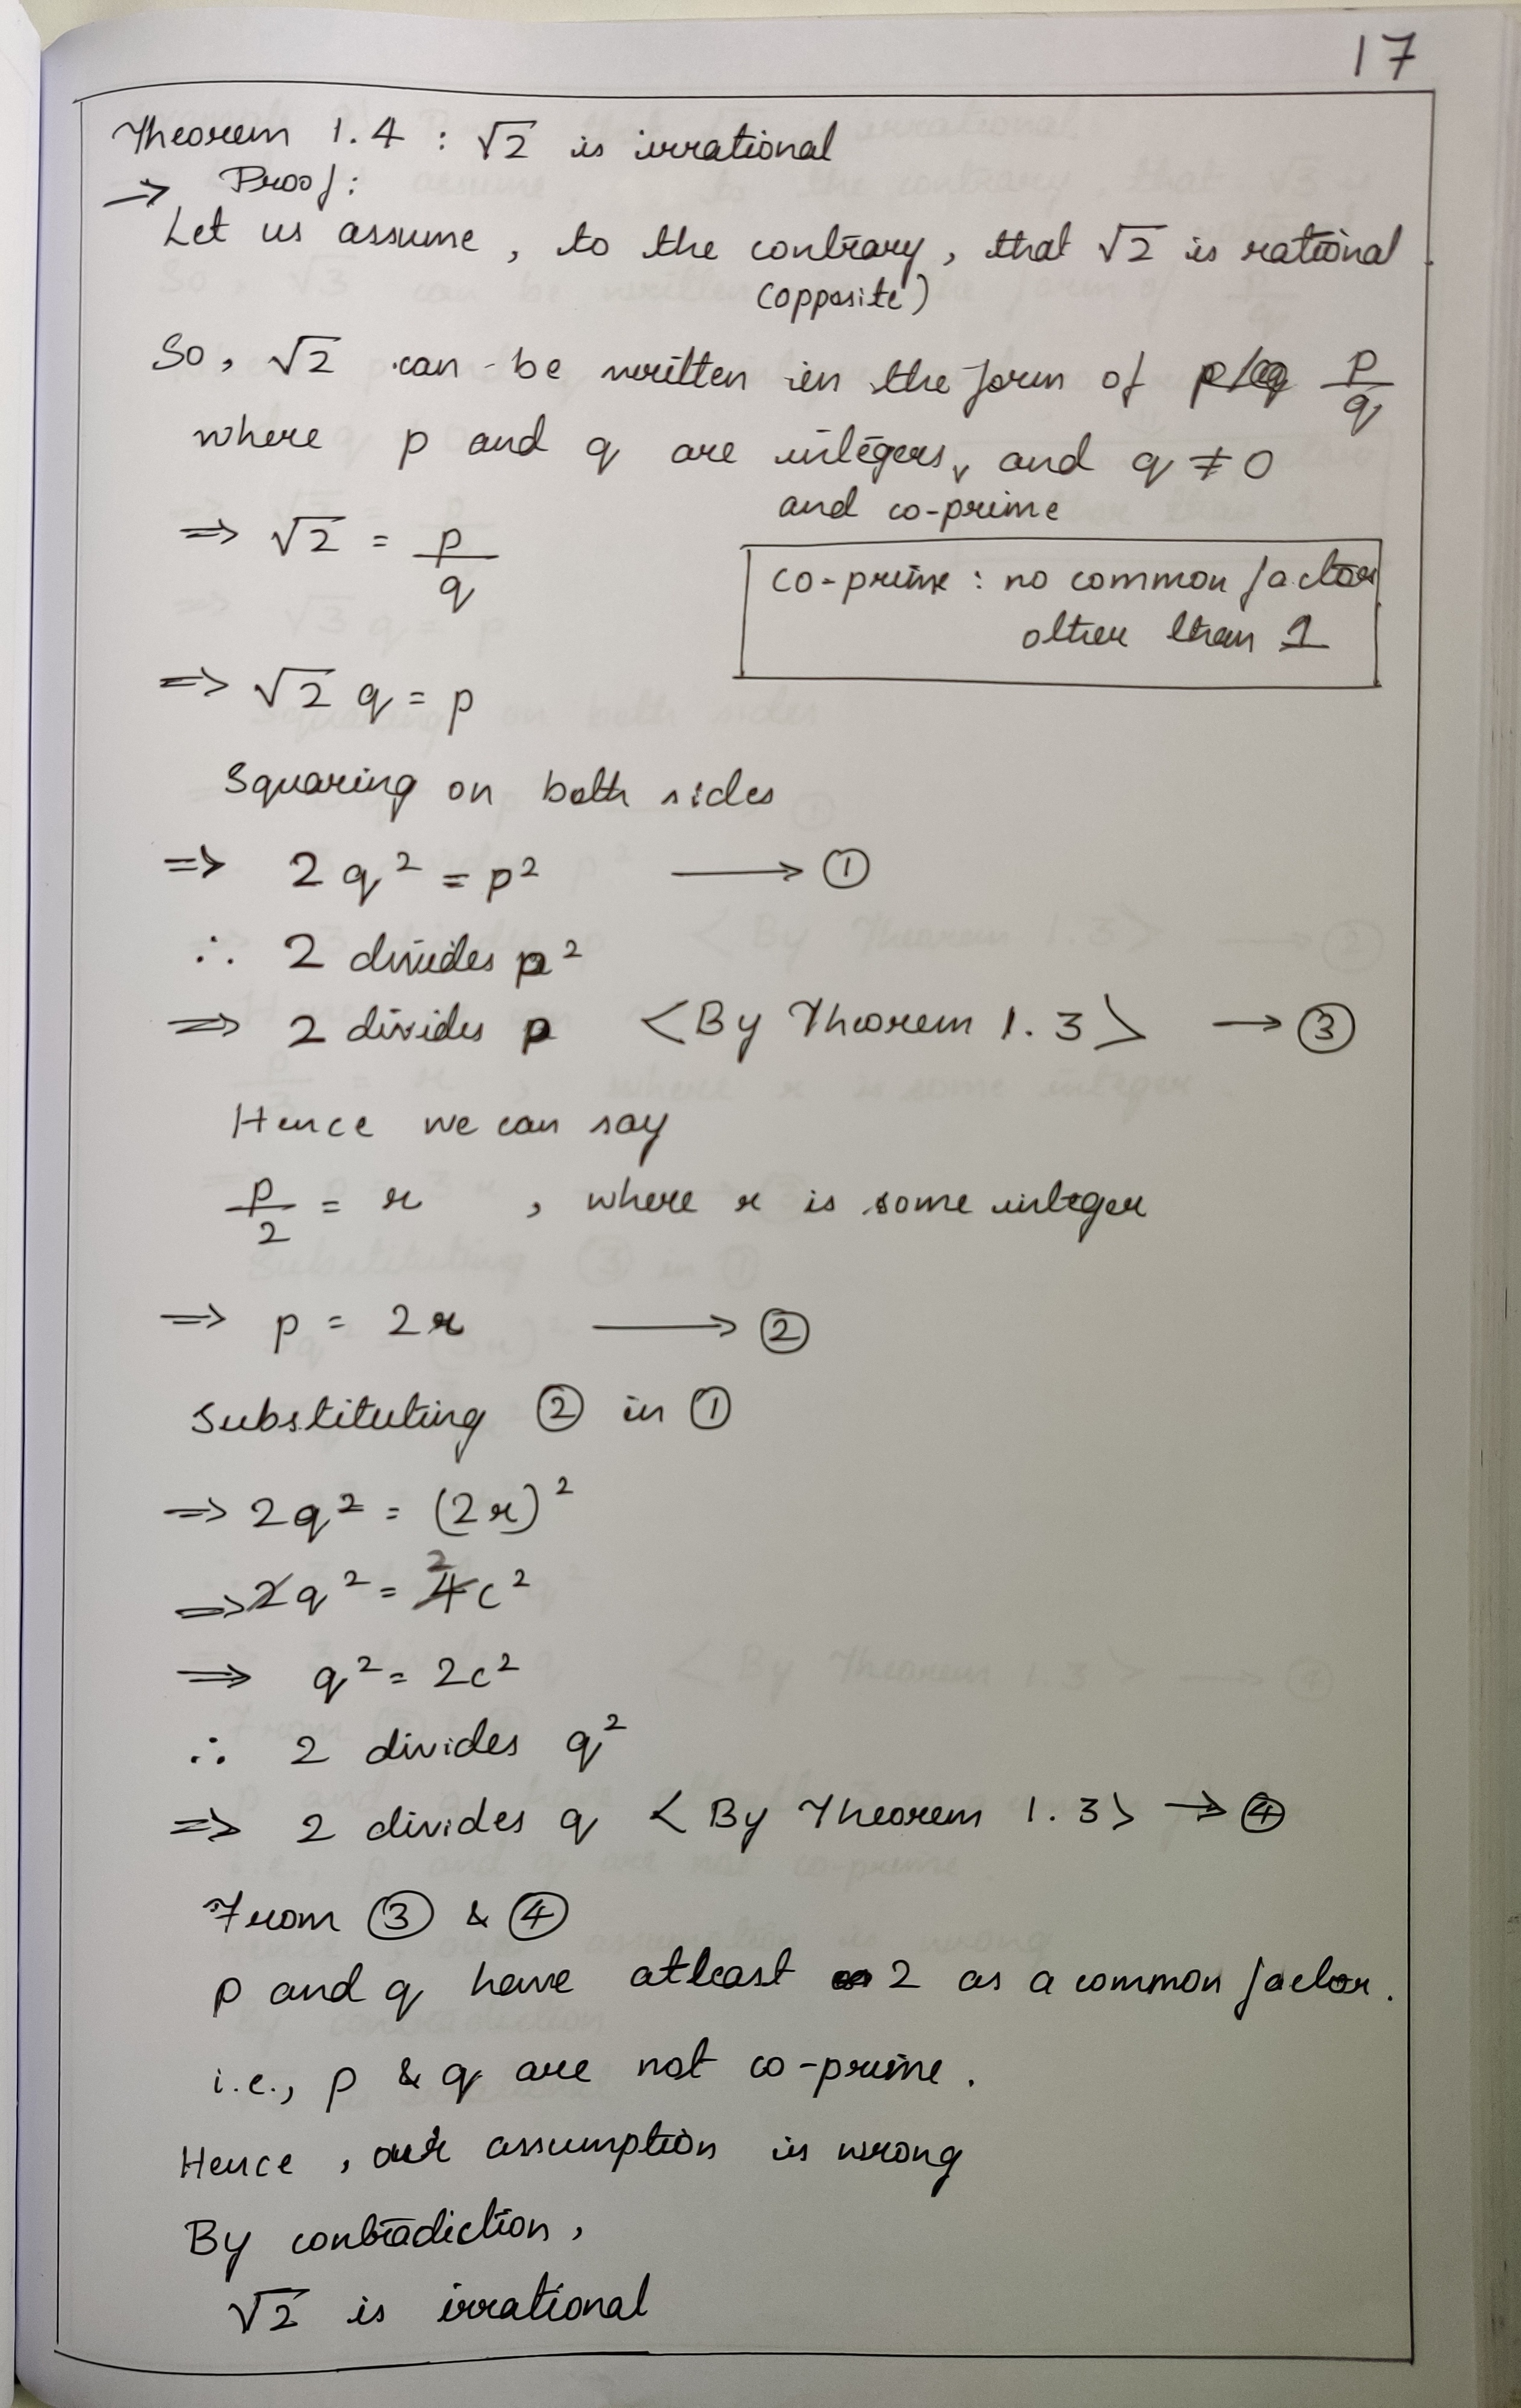 17
Theorem 1.4 : √2 is irrational
→ Proof:
Let us assume, to the contrary, that √2 is rational.
(opposite)
So, √2 can be written in the form of p/q
where p and q are integers, and q ≠ 0
and co-prime
⇒ √2 = p/q
co-prime : no common factor
other than 1
⇒ √2 q = p
Squaring on both sides
⇒ 2q² = p² → ①
∴ 2 divides p²
⇒ 2 divides p <By Theorem 1.3> → ③
Hence we can say
p/2 = r , where r is some integer
⇒ p = 2r → ②
Substituting ② in ①
⇒ 2q² = (2r)²
⇒ 2q² = 4c² 2
⇒ q² = 2c²
∴ 2 divides q²
⇒ 2 divides q <By Theorem 1.3> → ④
From ③ & ④
p and q have atleast 2 as a common factor.
i.e., p & q are not co-prime.
Hence, our assumption is wrong
By contradiction,
√2 is irrational